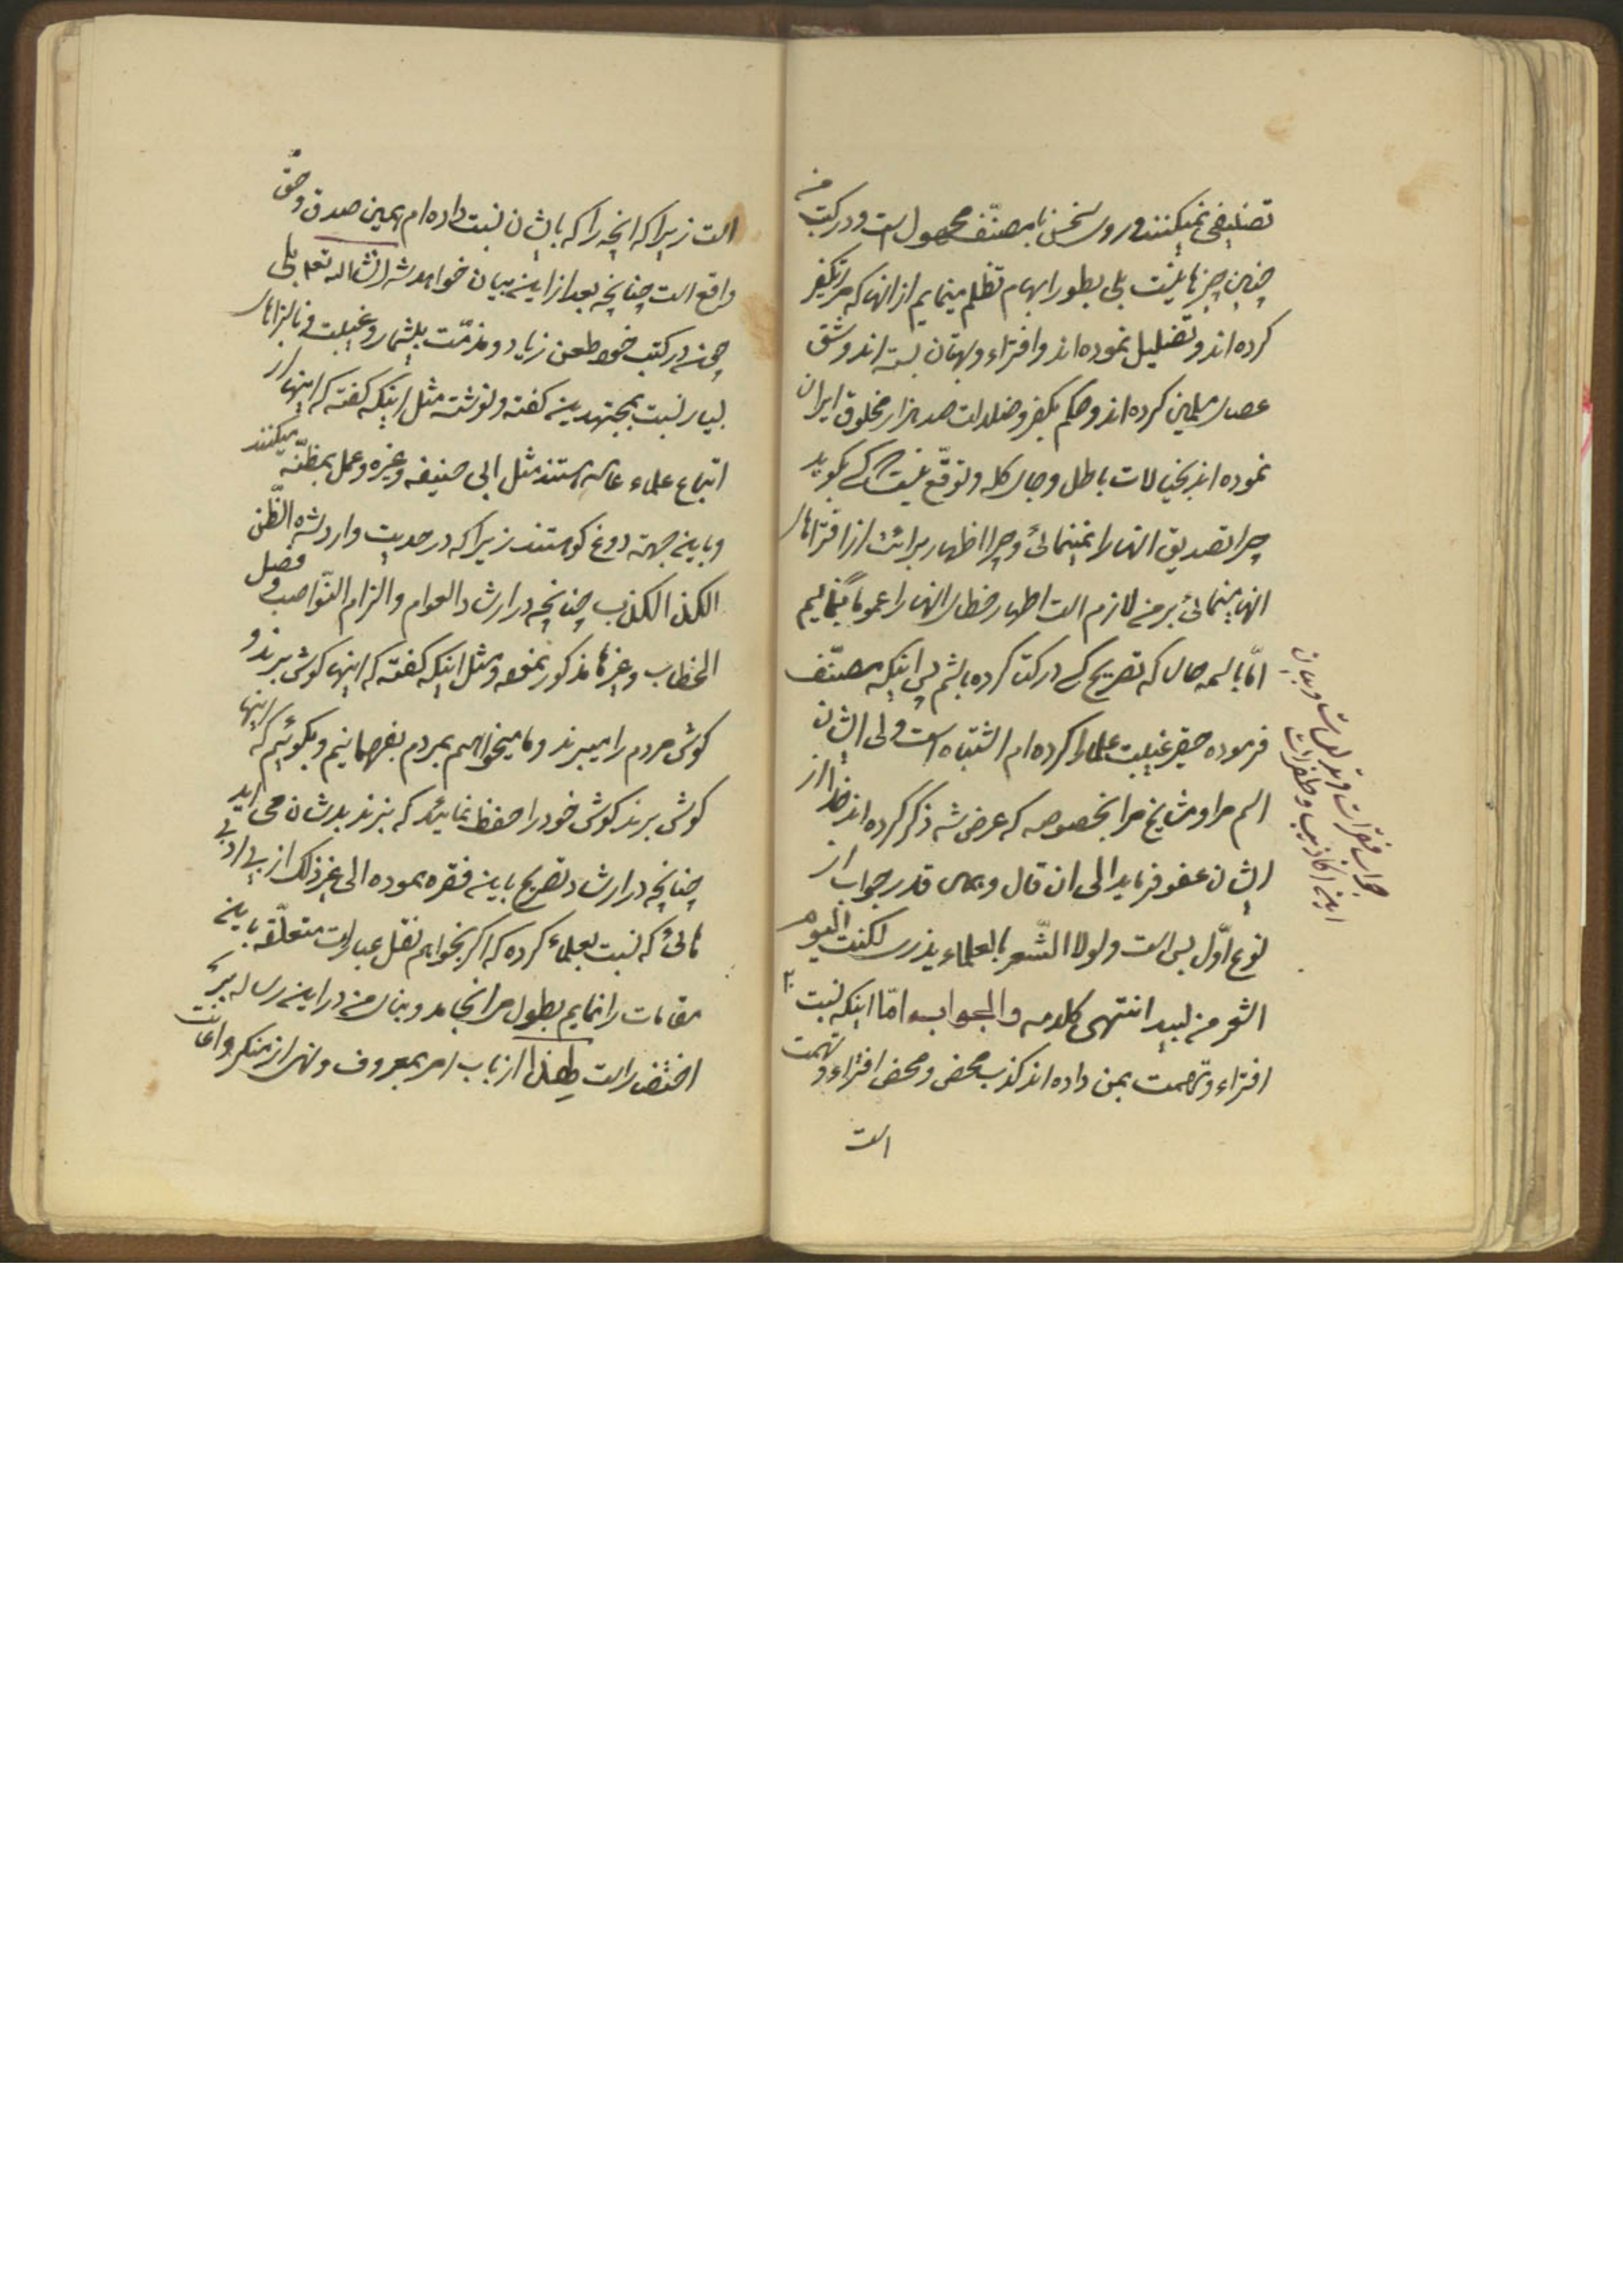 تصنیفی نمیکنند و روی سخن با مصنّف مجهول است و در کتب من
چنین چیزها نیست بلی بطور ابهام تظلم مینمایم از انها که مرا تکفیر
کرده اند و تضلیل نموده اند و افتراء و بهتان بسته اند و شق
عصای مسلمین کرده اند و حکم بکفر و ضلالت صد هزار مخلوق ایران
نموده اند بخیالات باطل و جای کله و توقع نیست که کسی بگوید
چرا تصدیق انها را نمینمائی و چرا اظهار برائت از افتراهای
انها مینمائی بر من لازم است اظهار خطای انها را عموماً بنمایم
امّا باسمه حال که تصریح کسی در کتب کرده باشم پس اینکه مصنّف
فرموده حقیر غیبت علما را کرده ام اشتباه است ولی ایشان
اسم مرا و مشایخ مرا بخصوصه که عرض شد ذکر کرده اند خدا از
ایشان عفو فرماید الی ان قال و همین قدر جواب از
نوع اوّل بس است و لولا الشّعر بالعلماء یذری لکنت الیوم
اشعر من لبید انتهی کلامه والجواب امّا اینکه نسبت
افتراء و تهمت بمن داده اند کذب محض و محض افتراء و تهمت
است
جواب فقرات و بیان
این اکاذیب و
است زیرا که انچه را که بایشان نسبت داده ام همین صدق و حقّ
واقع است چنانچه بعد از این بیان خواهد شد انشاءالله تعالی بلی
چون در کتب خود طعن زیاد و مذمّت بیشمار و غیبت و نالزاهای
بسیار نسبت بمجتهدین گفته و نوشته مثل اینکه گفته که اینها از
اتباع علماء عامه هستند مثل ابی حنیفه و غیره و عمل بمظنّه میکنند
و باین جهة دروغ کو هستند زیرا که در حدیث وارد شده الظّن
اکذب الکذب چنانچه در ارشاد العوام و الزام النّواصب و فصل
الخطاب و غیرها مذکور نموده و مثل اینکه گفته که اینها گوش برند و
گوش مردم را میبرند و ما میخواهیم بمردم بفهمانیم و بگوئیم که اینها
گوش برند گوش خود را حفظ نمائید که بنزند بدشان می اید
چنانچه در ارشاد تصریح باین فقره نموده الی غیر ذلک از بی ادبی
هائی که نسبت بعلماء کرده که اگر بخواهم نقل عبارات متعلّقه باین
مقامات را نمایم بطول میانجامد و بنای من در این رساله بر
اختصار است لهذا از باب امر بمعروف و نهی از منکر و اعانت